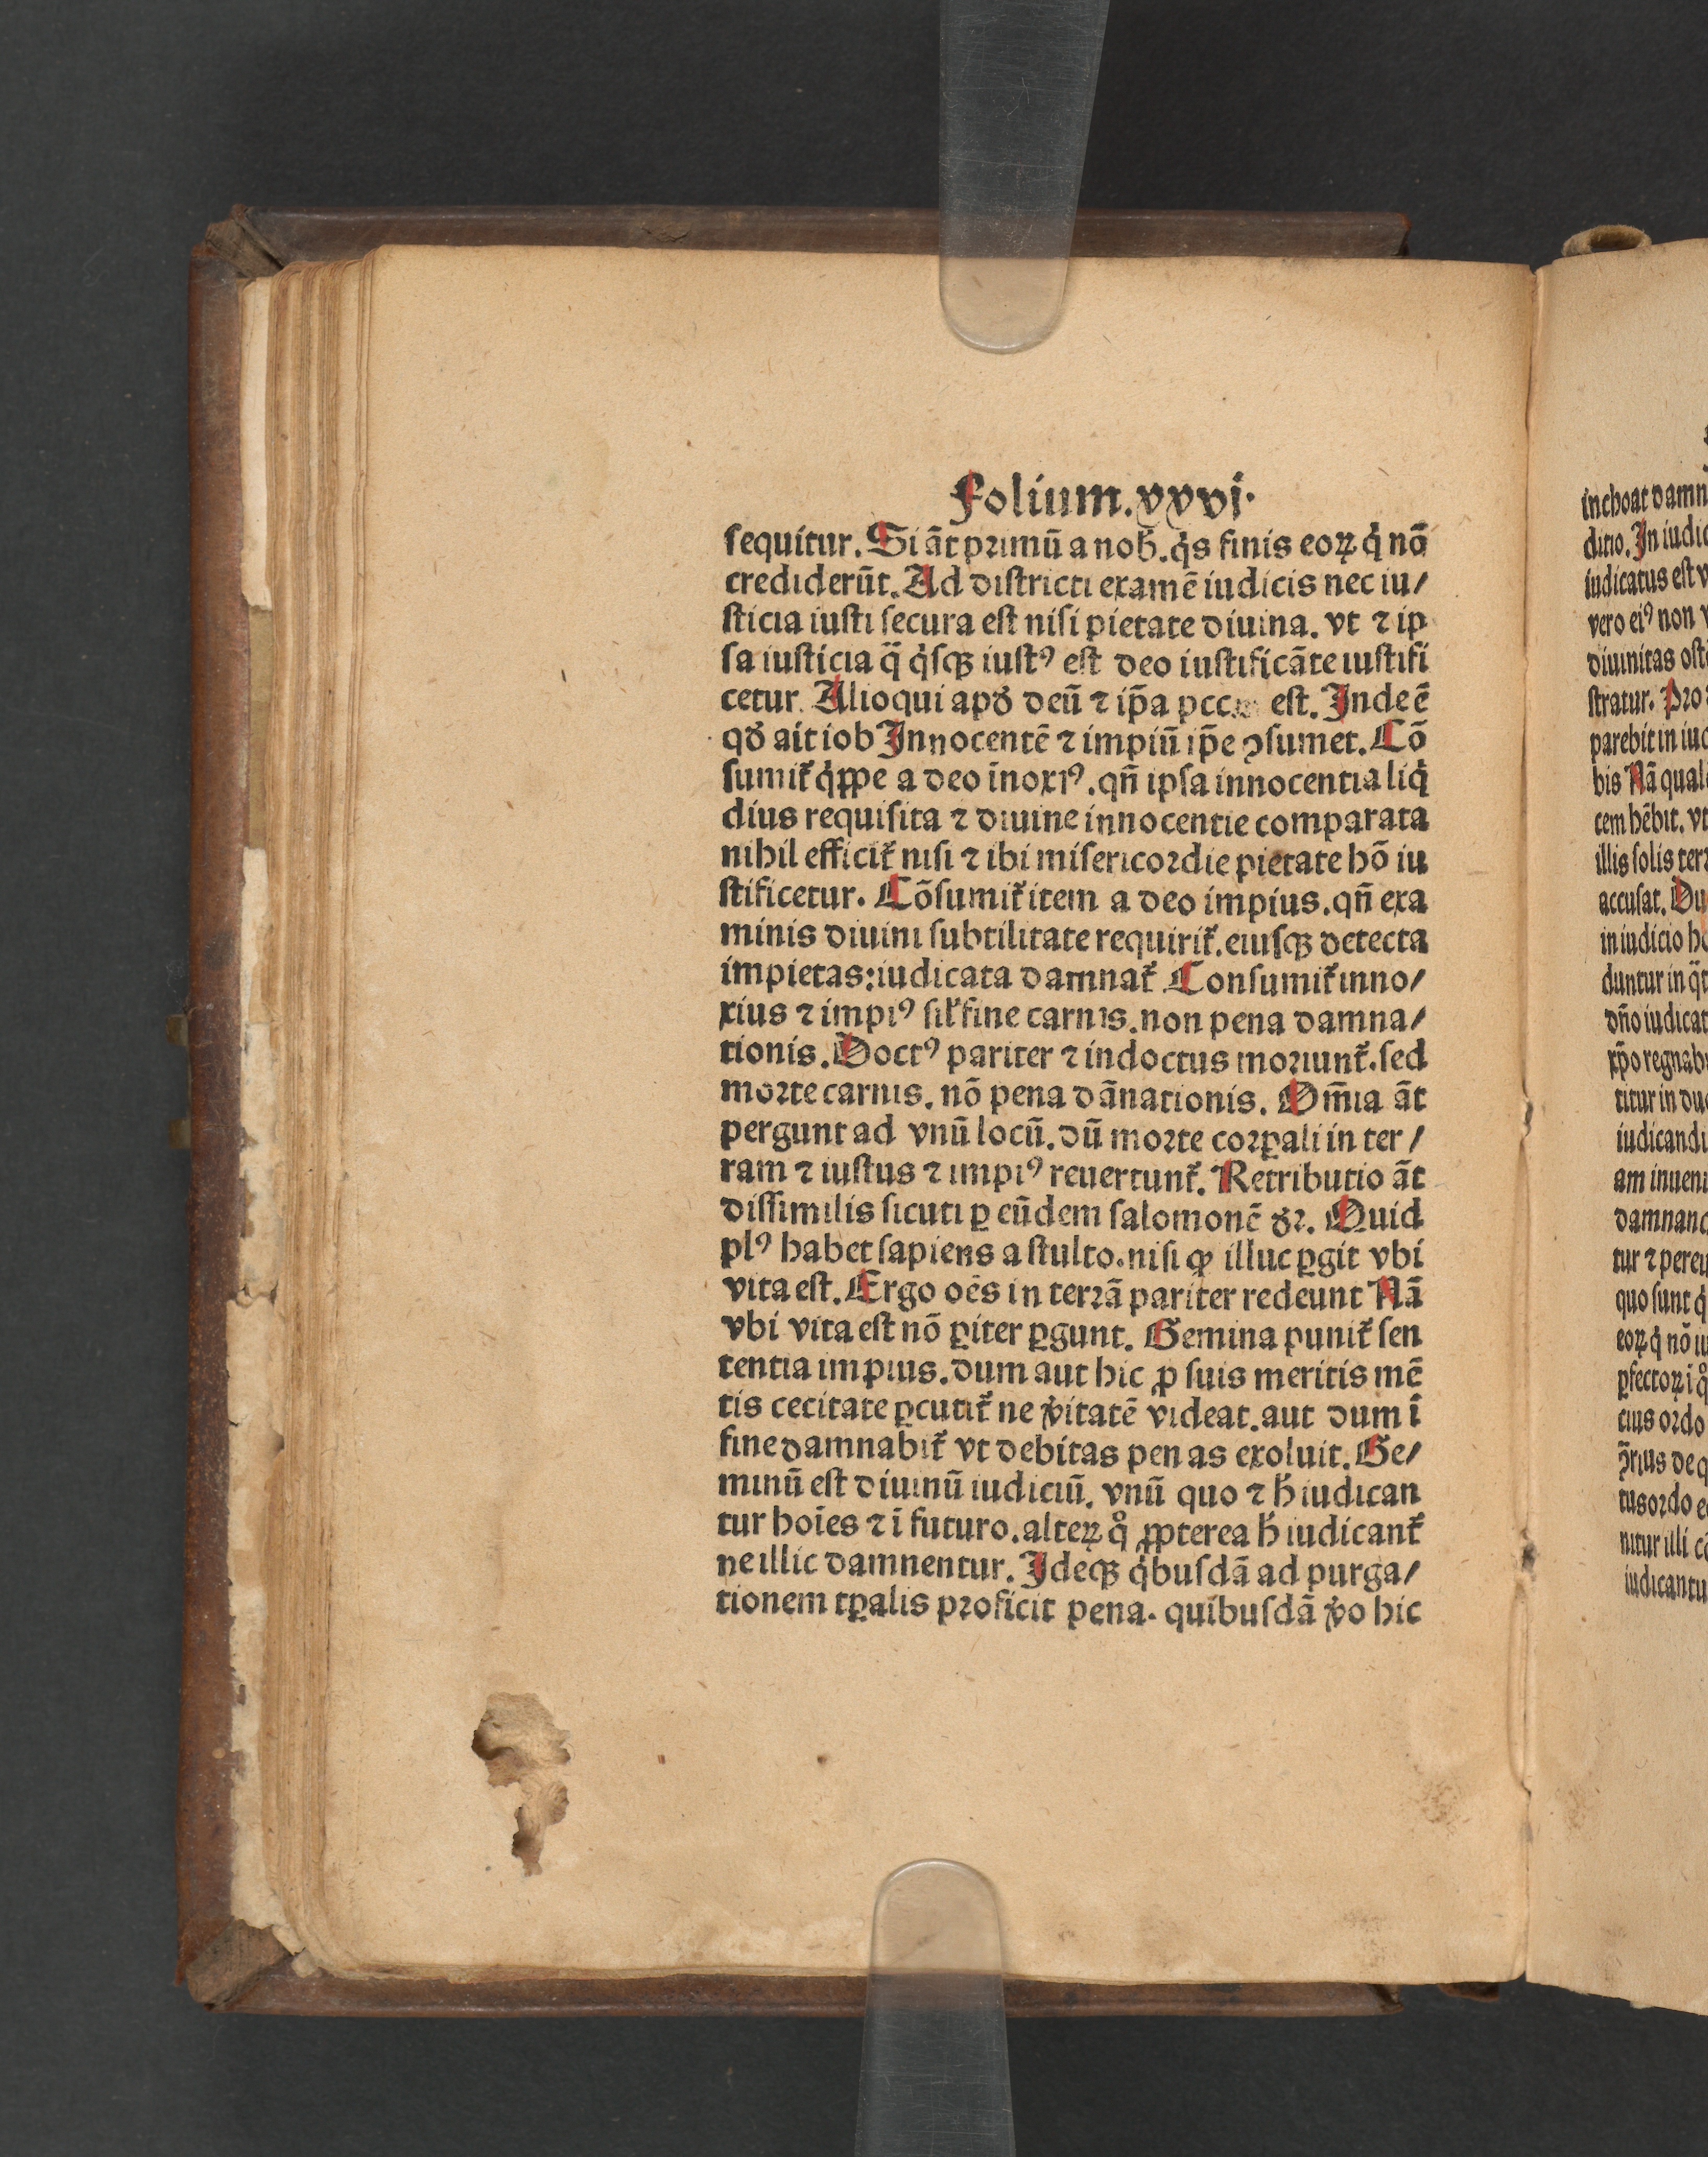 Folium.xxvi.
sequitur. Si āt primū a nob̄. q̇s finis eoꝝ q̇ nō
crediderūt. Ad districti examē iudicis nec iu/
sticia iusti secura est nisi pietate diuina. vt ⁊ ip
sa iusticia q̄ q̇sqꝫ iustꝰ est deo iustificāte iustifi
cetur. Alioqui apd̓ deū ⁊ ip̄a est. Inde ē
qd̓ ait iob Innocentē ⁊ impiū ip̄e ꝯsumet. Cō
sumit᷑ q̇ppe a deo īnoxiꝰ. qn̄ ipsa innocentia liq̇
dius requisita ⁊ diuine innocentie comparata
nihil efficit᷑ nisi ⁊ ibi misericordie pietate hō iu
stificetur. Cōsumit᷑ item a deo impius. qn̄ exa
minis diuini subtilitate requirit᷑. eiusqꝫ detecta
impietas: iudicata damnat᷑ Consumit᷑ inno/
xius ⁊ impiꝰ sil̓r fine carnis. non pena damna/
tionis. Doctꝰ pariter ⁊ indoctus moriunt᷑. sed
morte carnis. nō pena dānationis. Om̄ia āt
pergunt ad vnū locū. dū morte corꝑali in ter/
ram ⁊ iustus ⁊ impiꝰ reuertunt᷑. Retributio āt
dissimilis sicuti ꝑ eūdem salomonē d̓r. Quid
plꝰ habet sapiens a stulto. nisi ꝙ illuc ꝑgit vbi
vita est. Ergo oēs in terrā pariter redeunt Nā
vbi vita est nō ꝑiter ꝑgunt. Gemina punit᷑ sen
tentia impius. dum aut hic ꝓ suis meritis mē
tis cecitate ꝑcutit᷑ ne v̓itatē videat. aut dum ī
fine damnabit᷑ vt debitas penas exoluit. Ge/
minū est diuinū iudiciū. vnū quo ⁊ h̓ iudican
tur hoīes ⁊ ī futuro. alteꝝ qͦ ꝓpterea h̓ iudicant᷑
ne illic damnentur. Ideqꝫ q̇busdā ad purga/
tionem tꝑalis proficit pena. quibusdā v̓o hic
ditio. In
iudicatus est
vero eiꝰ non
diuinitas
stratur.
parebit in
bis Nā
tem hēbit. vt
illis solis
accusat.
in iudicio
duntur in
dn̄o
xp̄o
titur in
iudicandi
damnan
tur ⁊
quo sunt q̇
eoꝝ q̇ nō
ordo
nitur illi
iudicantu